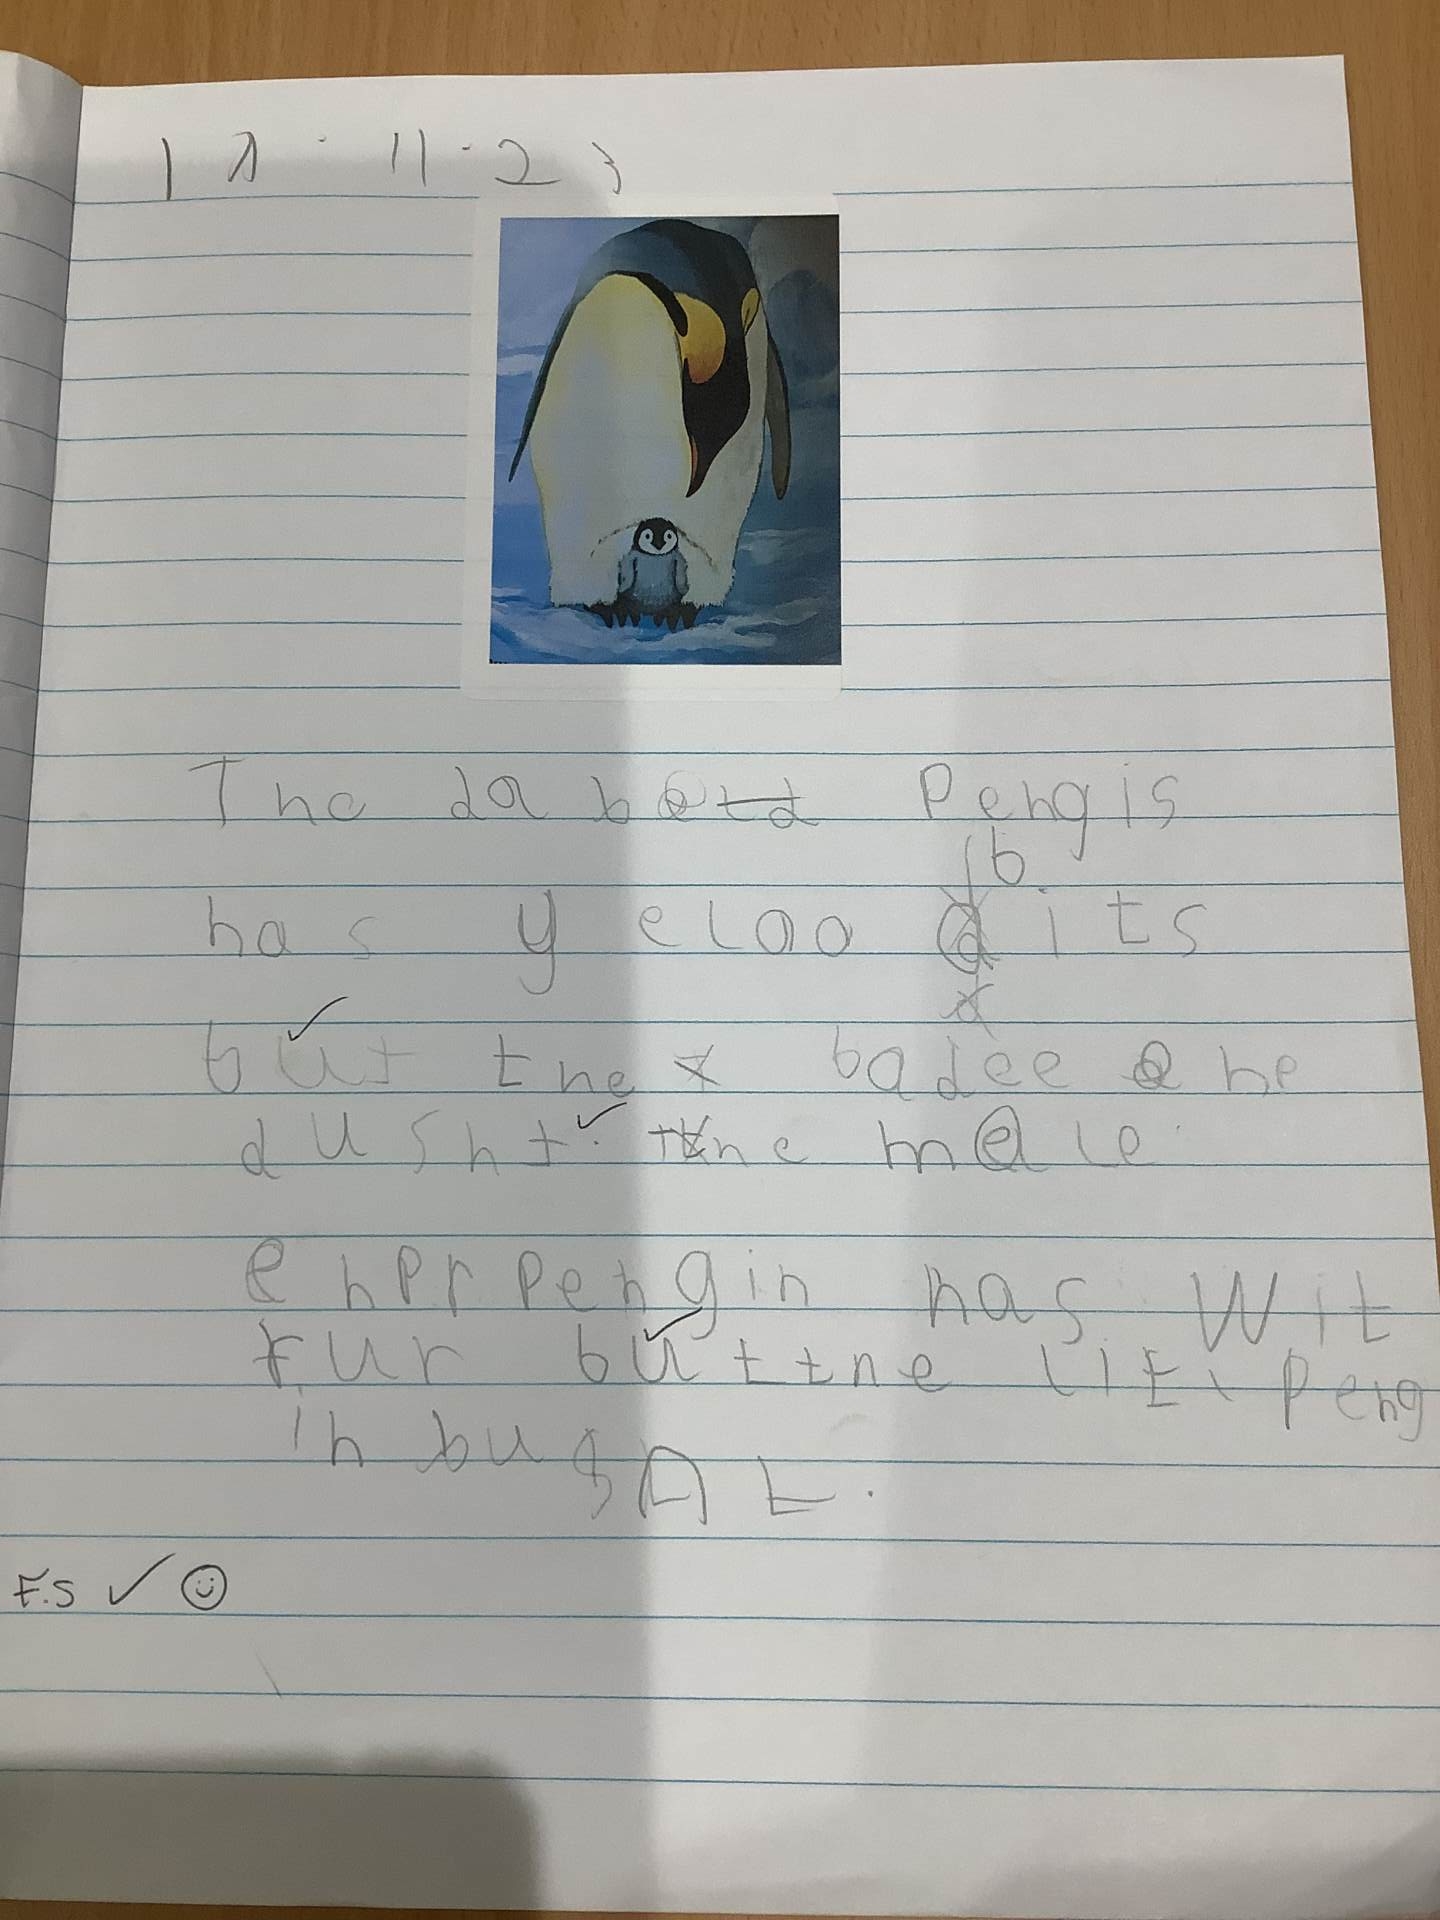 11.23
The da Pengis
has yeloo bits
but the badee one
dusht. the male
enprpengin has wit
fur but the litl Peng
in bus AL.
F.S